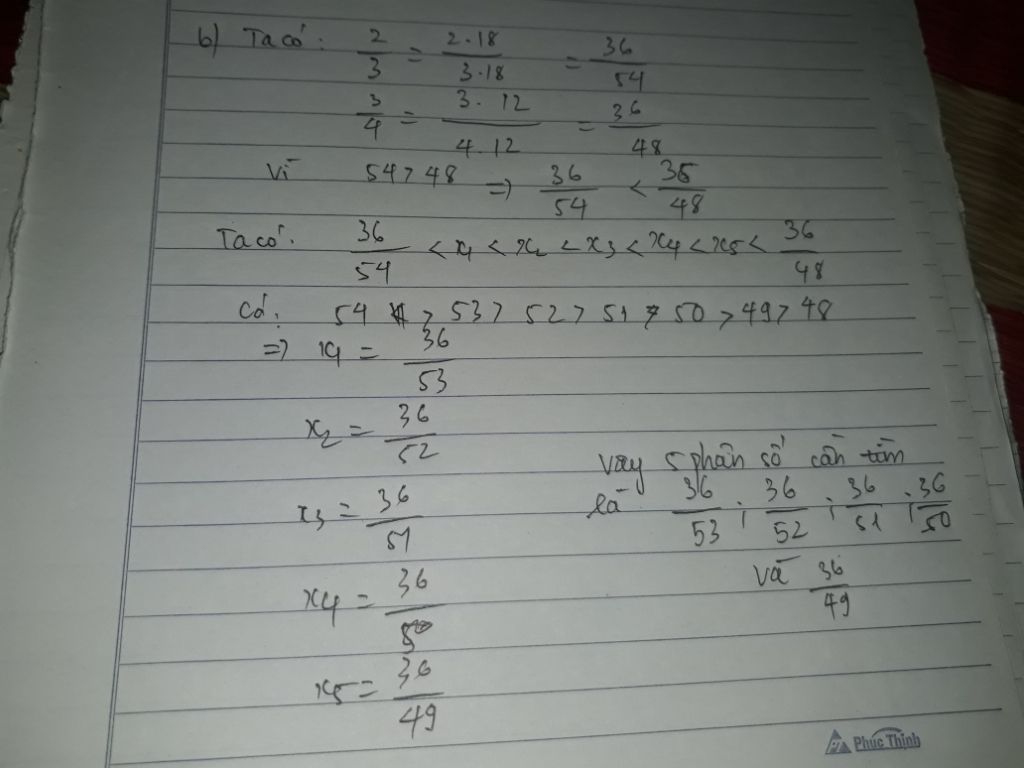 b) Ta có: 2/3 = 2.18/3.18 = 36/54
3/4 = 3.12/4.12 = 36/48
Vì 54 > 48 => 36/54 < 36/48
Ta có: 36/54 < x1 < x2 < x3 < x4 < x5 < 36/48
Có: 54 > 53 > 52 > 51 > 50 > 49 > 48
=> x1 = 36/53
x2 = 36/52
x3 = 36/51
x4 = 36/50
x5 = 36/49
Vậy 5 phân số cần tìm
là 36/53 ; 36/52 ; 36/51 ; 36/50
và 36/49
Phúc Thịnh